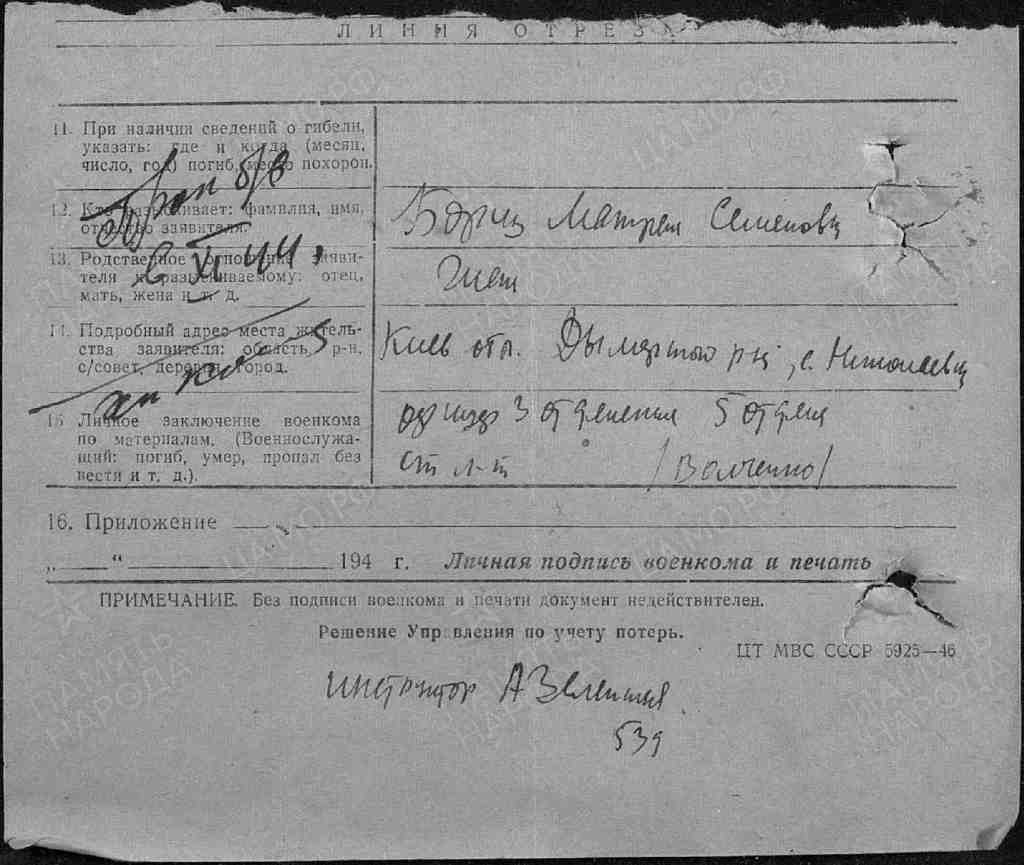 ЛИНИЯ ОТРЕЗА
11. При наличии сведений о гибели,
указать: где и когда (месяц,
число, год) погиб, место похорон.
12. Кто разыскивает: фамилия, имя,
отчество заявителя.
Матрена Семеновна
13. Родственное отношение заяви-
теля к разыскиваемому: отец,
мать, жена и т. д.
14. Подробный адрес места житель-
ства заявителя: область, р-н,
с/совет, деревня, город.
Киев обл. Дымерского р-на, с. Николаевка
15. Личное заключение военкома
по материалам. (Военнослужа-
щий: погиб, умер, пропал без
вести и т. д.).
3 отделения 5 отдела
ст л-т
пропал б/в
в XI 44 г.
16. Приложение
„ “ 194 г. Личная подпись военкома и печать
ПРИМЕЧАНИЕ. Без подписи военкома и печати документ недействителен.
Решение Управления по учету потерь.
ЦТ МВС СССР 5925—46
инструктор А
53 г
ПАМЯТЬ
НАРОДА
ЦАМО.РФ